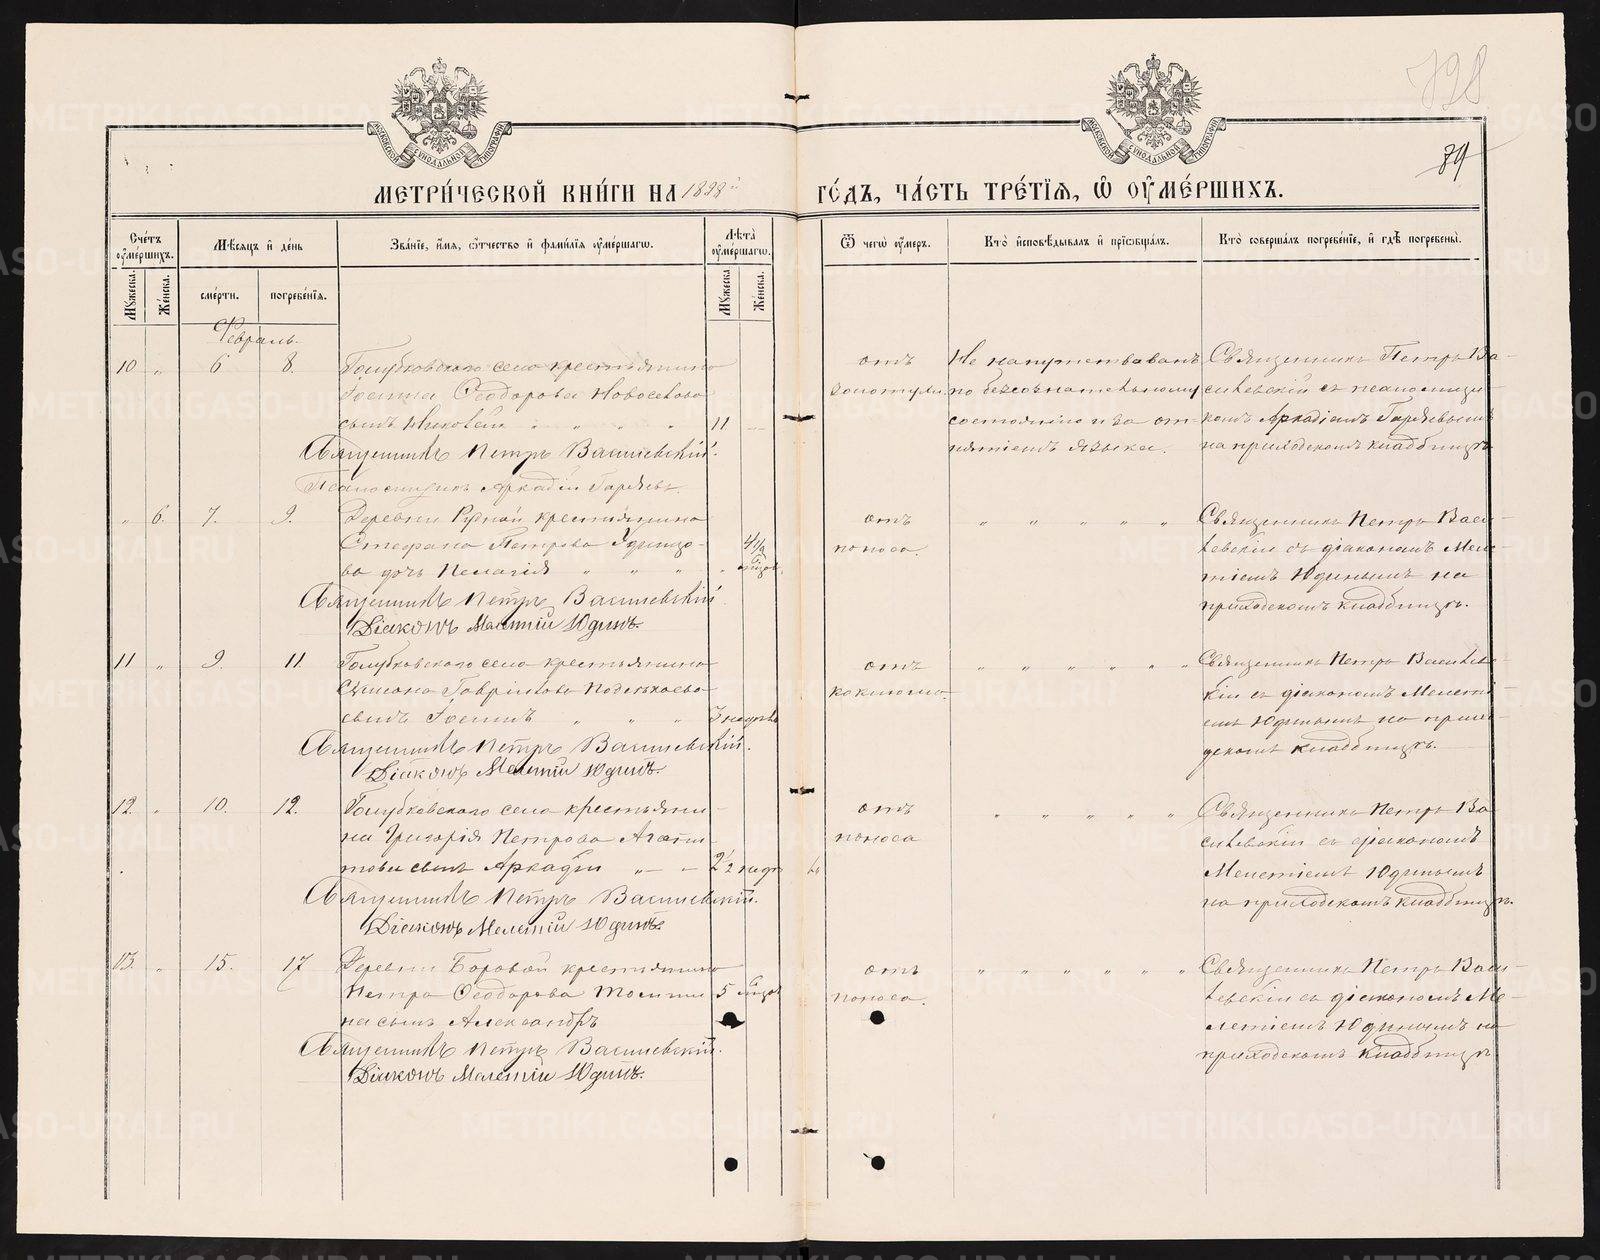 798
89
МЕТРИ́ЧЕСКОЙ КНИ́ГИ НА 1898й ГО́ДЪ, ЧА́СТЬ ТРЕ́ТЇѦ, Ѽ ОУ҆МЕ́РШИХЪ.
МОСКОВСКОЙ СѴНОДАЛЬНОЙ ТИПОГРАФІИ
МОСКОВСКОЙ СѴНОДАЛЬНОЙ ТИПОГРАФІИ
Сче́тъ оу҆ме́ршихъ.
Мꙋ́жеска.
Же́нска.
Мѣ́сѧцъ и҆ де́нь
сме́рти.
погребе́нїѧ.
Зва́нїе, и҆́мѧ, ѻ҆́тчество и҆ фами́лїѧ оу҆ме́ршагѡ.
Лѣ́та оу҆ме́ршагѡ.
Мꙋ́жеска.
Же́нска.
Ѿ чегѡ̀ оу҆́меръ.
Кто̀ и҆сповѣ́дывалъ и҆ прїѡбща́лъ.
Кто̀ соверша́лъ погребе́нїе, и҆ гдѣ̀ погребены̀.
Февраль.
10 „ 6 8. Голубковскаго села крестьянина
Ѳеодорова Новоселова
сынъ „ „ „ 11
Священникъ Петръ Василевскій.
Псаломщикъ Аркадій Гаряевъ.
отъ
золотухи.
Не напутствованъ
по безсознательному
состоянію и за от-
нятіемъ языка.
Священникъ Петръ Ва-
силевскій съ псаломщи-
комъ Аркадіемъ Гаряевымъ
на приходскомъ кладбищѣ.
„ 6. 7. 9. Деревни Рудной крестьянина
Стефана Петрова Удинцо-
ва дочь Пелагія „ „ „ „ 4 1/2 мѣсяц.
Священникъ Петръ Василевскій
Діаконъ Мелетій Юдинъ.
отъ
поноса.
„ „ „ „ „
Священникъ Петръ Васи-
левскій съ діакономъ Меле-
тіемъ Юдинымъ на
приходскомъ кладбищѣ.
11 „ 9. 11 Голубковскаго села крестьянина
Симеона Гаврилова Подкинаева
сынъ Іосифъ „ „ „ 3 недѣль
Священникъ Петръ Василевскій.
Діаконъ Мелетій Юдинъ.
отъ
коклюша
„ „ „ „ „ „
Священникъ Петръ Василевс-
кій съ діакономъ Мелеті-
емъ Юдинымъ на прихо-
дскомъ кладбищѣ.
12. „ 10. 12. Голубковскаго села крестьяни-
на Григорія Петрова Агапи-
това сынъ Аркадій „ – – 2 1/2 недѣ ль
Священникъ Петръ Василевскій.
Діаконъ Мелетій Юдинъ.
отъ
поноса
„ „ „ „ „
Священникъ Петръ Ва-
силевскій съ діакономъ
Мелетіемъ Юдинымъ
на приходскомъ кладбищѣ.
13. „ 15. 17 Деревни Боровой крестьянина
Петра Ѳеодорова 5 мѣсяц
на сынъ Александръ
Священникъ Петръ Василевскій.
Діаконъ Мелетій Юдинъ.
отъ
поноса.
„ „ „ „ „ „
Священникъ Петръ Васи-
левскій съ діакономъ Ме-
летіемъ Юдинымъ на
приходскомъ кладбищѣ